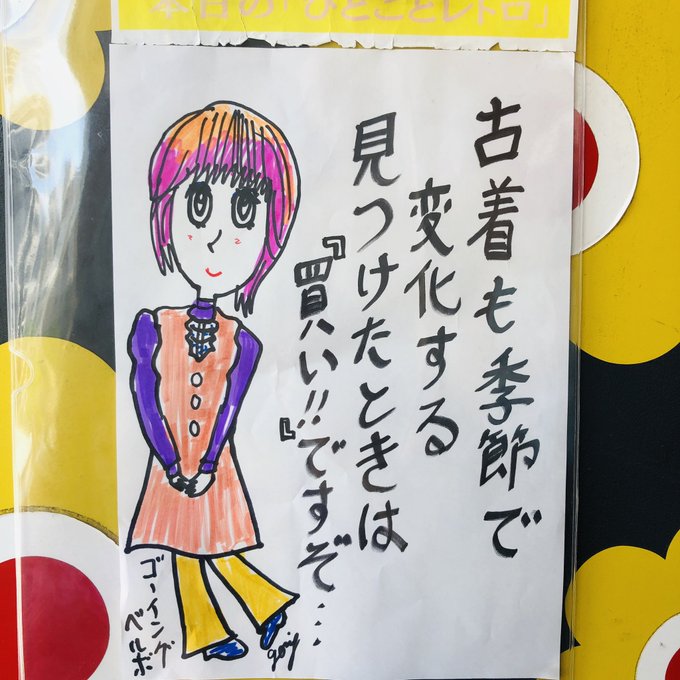 本日の「ひとことレトロ」
古着も季節で
変化する
見つけたときは
『買い!!』ですぞ…
ゴーイング
ベルボ